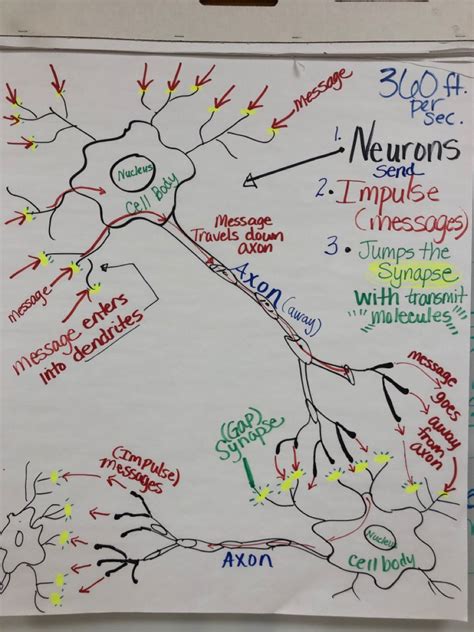 360 ft.
per
sec.
message
1. Neurons
send
2. Impulse
(messages)
3. Jumps the
Synapse
with transmit
"molecules"
Nucleus
Cell Body
Message
Travels down
axon
Axon (away)
message
message enters
into dendrites
message
goes
away
from
axon
(Gap)
Synapse
(Impulse)
messages
Nucleus
Cell body
Axon